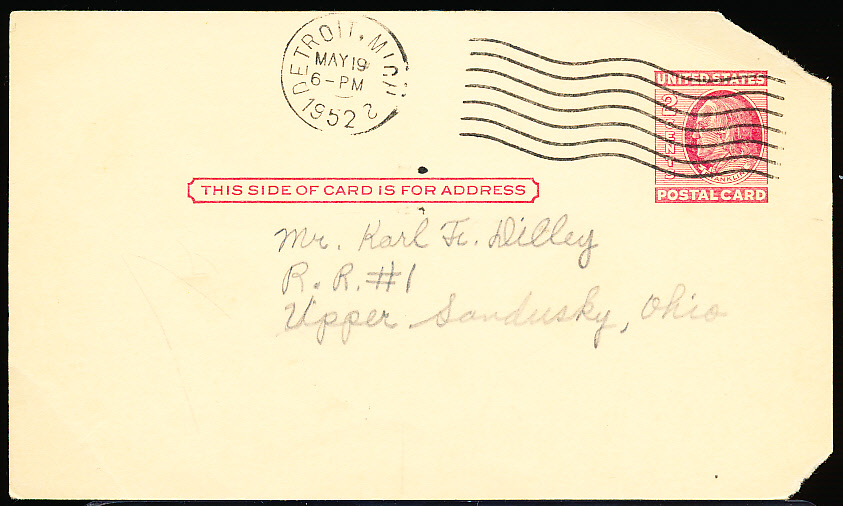 DETROIT, MICH
MAY 19
6-PM
1952
2
UNITED STATES
2 CENTS
FRANKLIN
POSTAL CARD
THIS SIDE OF CARD IS FOR ADDRESS
Mr. Karl Fr. Dilley
R. R. #1
Upper Sandusky, Ohio